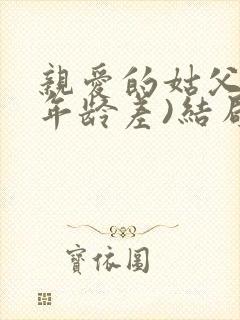 親愛的姑父
年龄差)結局
寶依圖